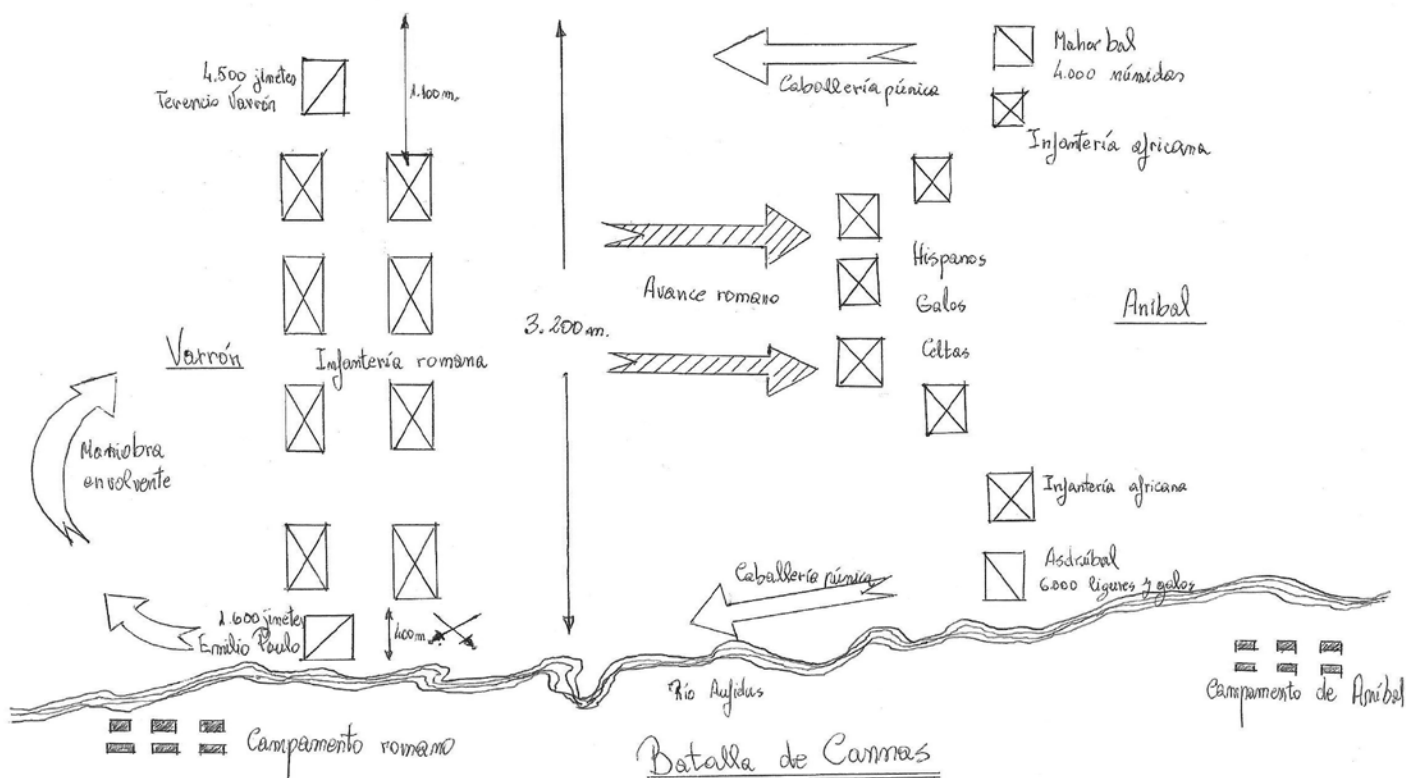 4.500 jinetes
Terencio Varrón
1.100 m.
Caballería púnica
Maharbal
4.000 númidas
Infantería africana
Hispanos
Galos
Celtas
Avance romano
3.200 m.
Aníbal
Varrón
Infantería romana
Maniobra
envolvente
Infantería africana
Asdrúbal
6.000 ligures y galos
Caballería púnica
1.600 jinetes
Emilio Paulo
400 m.
Río Aufidus
Campamento de Aníbal
Campamento romano
Batalla de Cannas